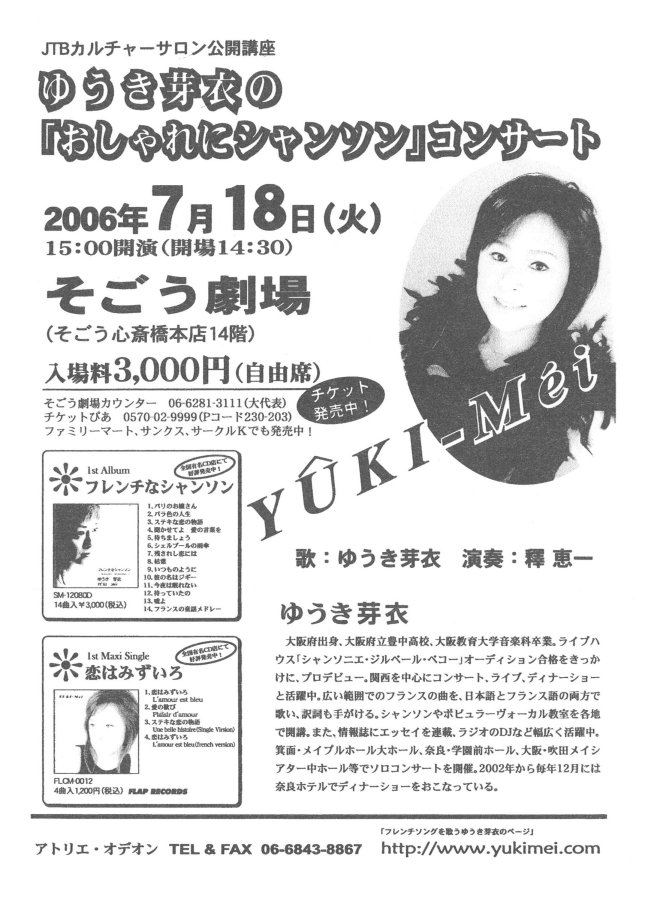 JTBカルチャーサロン公開講座
ゆうき芽衣の
『おしゃれにシャンソン』コンサート
2006年7月18日(火)
15:00開演(開場14:30)
そごう劇場
(そごう心斎橋本店14階)
入場料3,000円(自由席)
チケット
発売中!
そごう劇場カウンター 06-6281-3111(大代表)
チケットぴあ 0570-02-9999(Pコード230-203)
ファミリーマート、サンクス、サークルKでも発売中!
YÛKI-Méi
全国有名CD店にて
好評発売中!
1st Album
フレンチなシャンソン
1.パリのお嬢さん
2.バラ色の人生
3.ステキな恋の物語
4.聞かせてよ 愛の言葉を
5.待ちましょう
6.シェルブールの雨傘
7.残されし恋には
8.枯葉
9.いつものように
10.彼の名はジギー
11.今夜は眠れない
12.待っていたの
13.嘘よ
14.フランスの童謡メドレー
フレンチなシャンソン
ゆうき 芽衣
SM-12080D
14曲入¥3,000(税込)
歌:ゆうき芽衣 演奏:釋 恵一
全国有名CD店にて
好評発売中!
1st Maxi Single
恋はみずいろ
1.恋はみずいろ
L'amour est bleu
2.愛の歓び
Plaisir d'amour
3.ステキな恋の物語
Une belle histoire(Single Virsion)
4.恋はみずいろ
L'amour est bleu(french version)
YUKI-Mei
FLCM-0012
4曲入1,200円(税込) FLAP RECORDS
ゆうき芽衣
大阪府出身、大阪府立豊中高校、大阪教育大学音楽科卒業。ライブハ
ウス「シャンソニエ・ジルベール・ベコー」オーディション合格をきっか
けに、プロデビュー。関西を中心にコンサート、ライブ、ディナーショー
と活躍中。広い範囲でのフランスの曲を、日本語とフランス語の両方で
歌い、訳詞も手がける。シャンソンやポピュラーヴォーカル教室を各地
で開講。また、情報誌にエッセイを連載、ラジオのDJなど幅広く活躍中。
箕面・メイプルホール大ホール、奈良・学園前ホール、大阪・吹田メイシ
アター中ホール等でソロコンサートを開催。2002年から毎年12月には
奈良ホテルでディナーショーをおこなっている。
「フレンチソングを歌うゆうき芽衣のページ」
アトリエ・オデオン TEL & FAX 06-6843-8867 http://www.yukimei.com